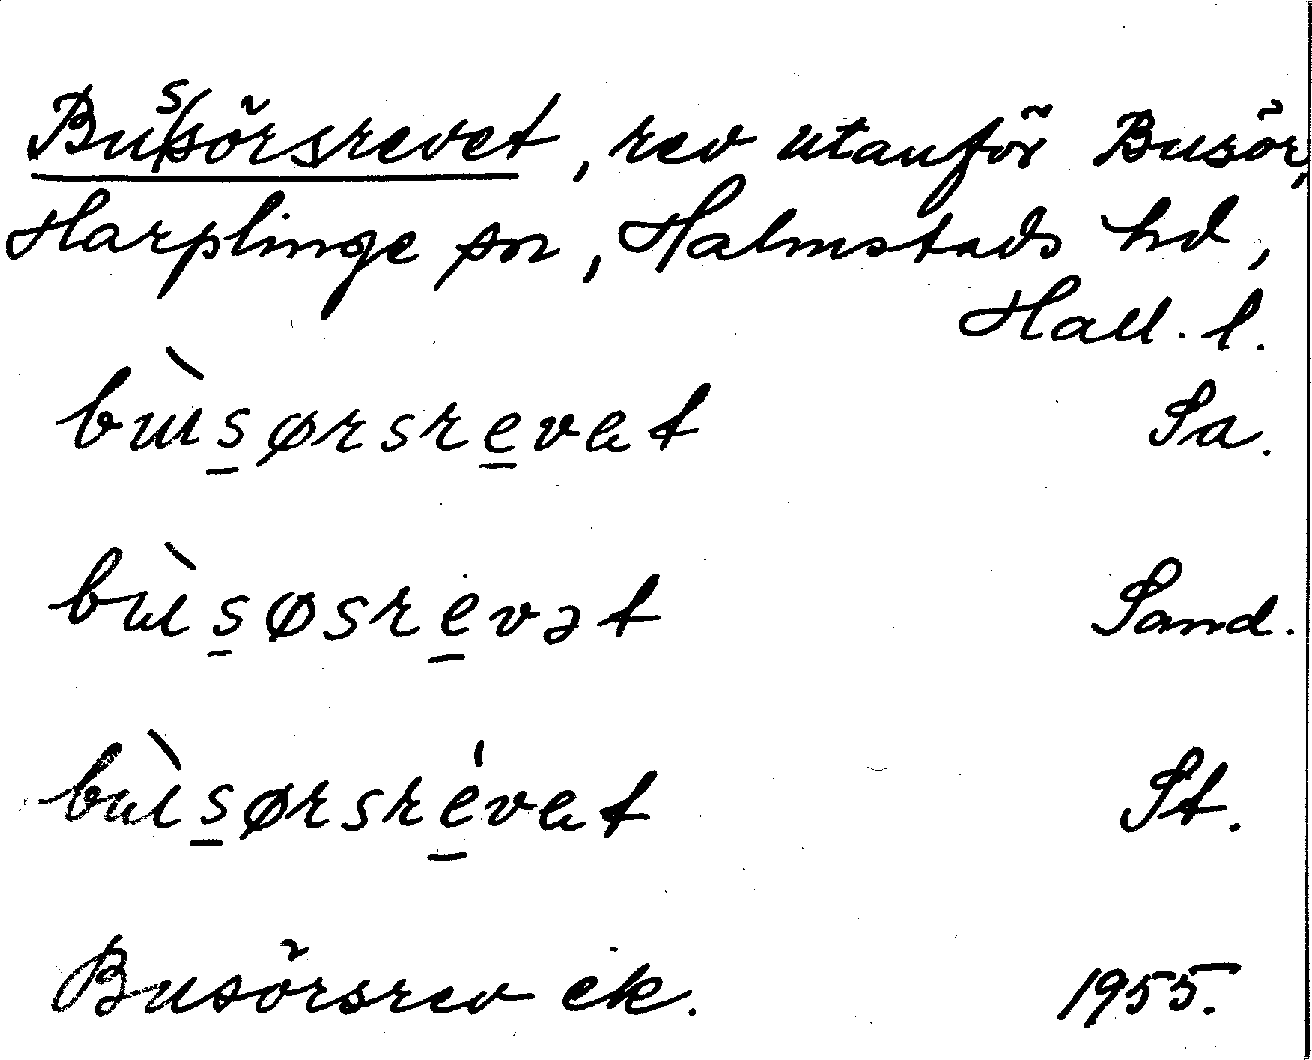 Bussörsrevet, rev utanför Busör,
Harplinge sn, Halmstads hd,
Hall. l.
bùs̠ørsre̠vet Sa.
bùs̠øsre̠vət Sand.
bùs̠ørsré̠vet St.
Busörsrev ek. 1955.